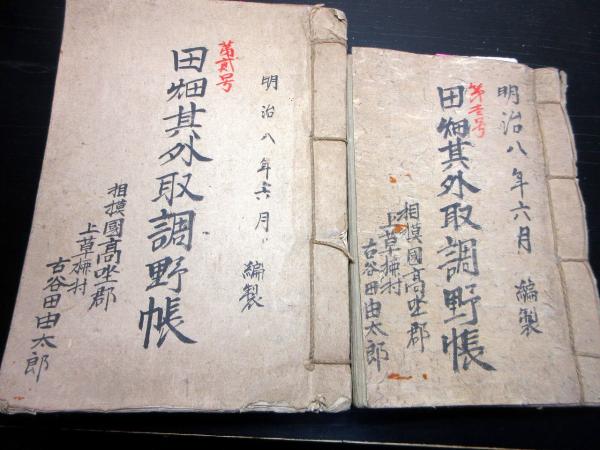 明治八年六月 編製
第壱号
田畑其外取調野帳
相摸國高坐郡
上草柳村
古谷田由太郎
明治八年六月 編製
第貳号
田畑其外取調野帳
相摸國高坐郡
上草柳村
古谷田由太郎